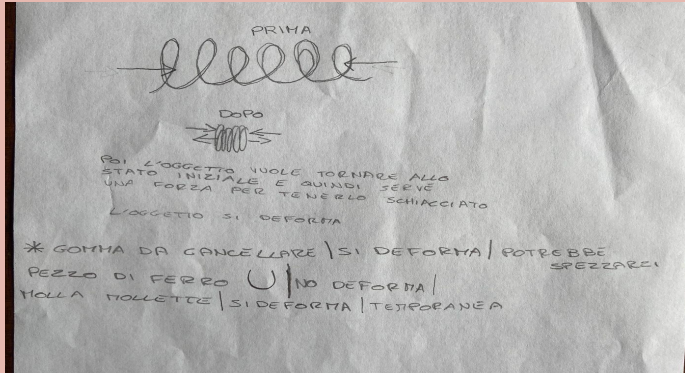 PRIMA
DOPO
POI L'OGGETTO VUOLE TORNARE ALLO
STATO INIZIALE E QUINDI SERVE
UNA FORZA PER TENERLO SCHIACCIATO
L'OGGETTO SI DEFORMA
* GOMMA DA CANCELLARE | SI DEFORMA | POTREBBE
SPEZZARSI
PEZZO DI FERRO | NO DEFORMA |
MOLLA MOLLETTE | SI DEFORMA | TEMPORANEA